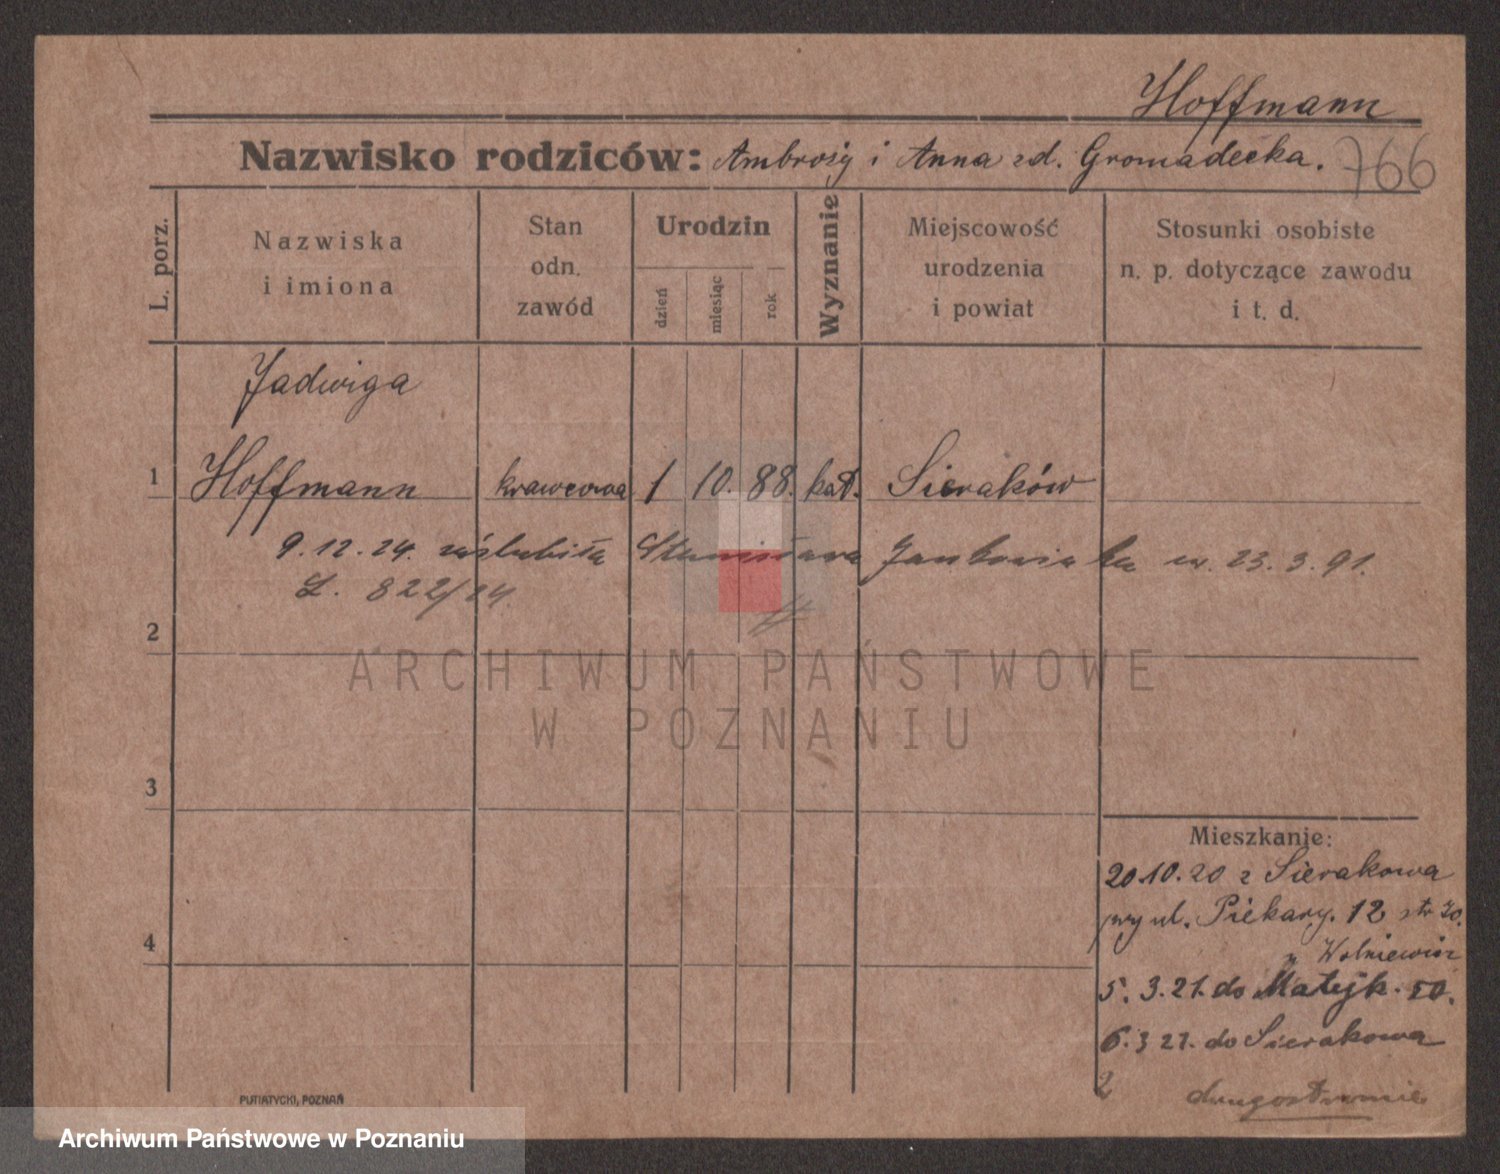 Hoffmann
Nazwisko rodziców: Ambroży i Anna zd. Gromadecka. 766
L. porz.
Nazwiska i imiona
Stan odn. zawód
Urodzin
dzień
miesiąc
rok
Wyznanie
Miejscowość urodzenia i powiat
Stosunki osobiste n. p. dotyczące zawodu i t. d.
Jadwiga
1 Hoffmann krawcowa 1 10. 88. kat. Sieraków
9.12.24. zaślubiła Stanisława Jankowiaka ur. 23.3.91.
L. 822/24.
2
3
4
Mieszkanie:
20.10.20 z Sierakowa
przy ul. Piekary. 12 str 30.
u Wolniewicz
5. 3.21. do Matejk. 50.
6.3 21. do Sierakowa
2
PUTIATYCKI, POZNAŃ
ARCHIWUM PAŃSTWOWE
W POZNANIU
Archiwum Państwowe w Poznaniu